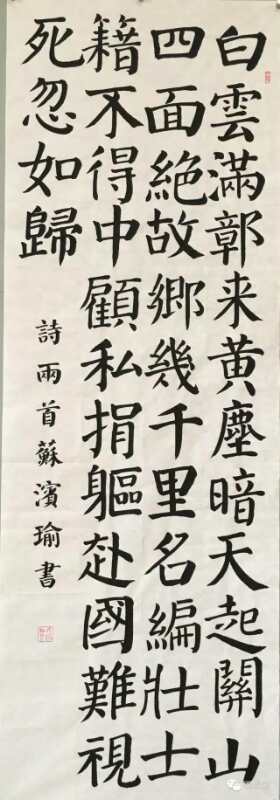 白雲滿鄣来黄塵暗天起關山
四面絶故鄉幾千里名編壯士
籍不得中顧私捐軀赴國難視
死忽如歸
詩兩首蘇濱瑜書